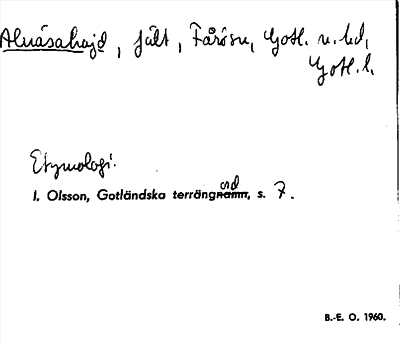 Alnäsahajd, fält, Fårösu, Gotl. n. hd,
Gotl. l.
Etymologi.
I. Olsson, Gotländska terrängord, s. 7.
B.-E. O. 1960.